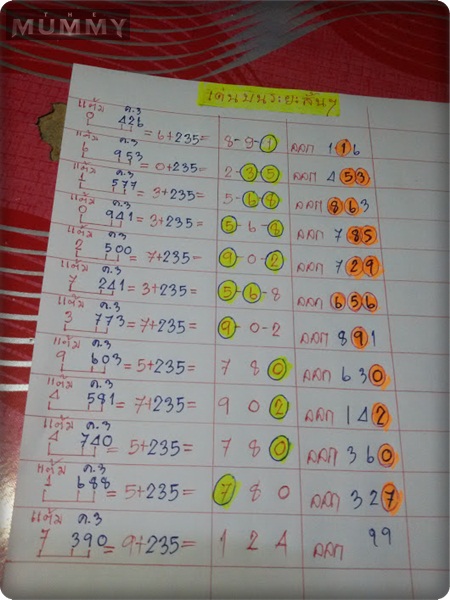 THE
MUMMY
เด่นบนระยะสั้นๆ
แต้ม ต.3
0 426 = 6+235= 8-9-1 ออก 116
แต้ม ต.3
6 953 = 0+235= 2-3-5 ออก 453
แต้ม ต.3
1 577 = 3+235= 5-6-8 ออก 863
แต้ม ต.3
0 941 = 3+235= 5-6-8 ออก 785
แต้ม ต.3
2 500 = 7+235= 9-0-2 ออก 729
แต้ม ต.3
7 241 = 3+235= 5-6-8 ออก 656
แต้ม ต.3
3 773 = 7+235= 9-0-2 ออก 891
แต้ม ต.3
9 603 = 5+235= 7 8 0 ออก 630
แต้ม ต.3
4 581 = 7+235= 9 0 2 ออก 142
แต้ม ต.3
4 740 = 5+235= 7 8 0 ออก 360
แต้ม ต.3
1 688 = 5+235= 7 8 0 ออก 327
แต้ม ต.3
7 390 = 9+235= 1 2 4 ออก ??